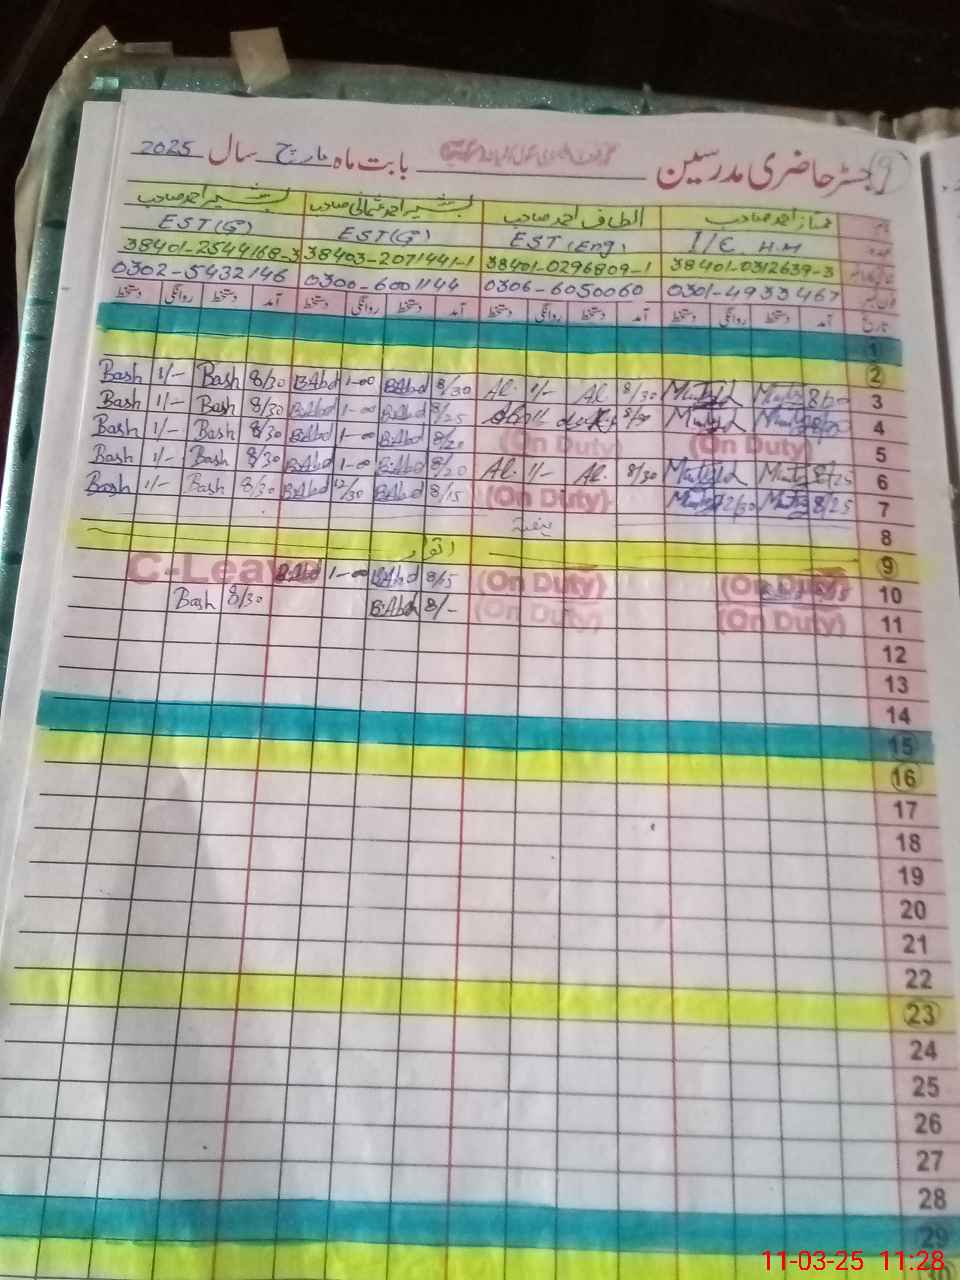 رجسٹر حاضری مدرسین بابت ماہ مارچ سال 2025
ممتاز احمد صاحب الطاف احمد صاحب بشیر احمد عثمانی صاحب بشیر احمد صاحب
I/C H.M EST (Eng) EST(G) EST(G)
38401-0312639-3 38401-0296809-1 38403-2071441-1 38401-2544168-3
0301-4933467 0306-6050060 0300-6001144 0302-5432146
تاریخ آمد دستخط روانگی دستخط آمد دستخط روانگی دستخط آمد دستخط روانگی دستخط آمد دستخط روانگی دستخط
1
2
3 8/30 Al 1/- Al. 8/30 B.Abd 1-00 B.Abd 8/30 Bash 1/- Bash
4 8/25 B.Abd 1-00 B.Abd 8/30 Bash 1/- Bash
5 (On Duty) (On Duty) 8/20 B.Abd 1-00 B.Abd 8/30 Bash 1/- Bash
6 8/25 8/30 Al. 1/- Al. 8/20 B.Abd 1-00 B.Abd 8/30 Bash 1/- Bash
7 8/25 12/30 (On Duty) 8/15 B.Abd 12/30 B.Abd 8/30 Bash 1/- Bash
8 ہفتہ
9 اتوار
10 (On Duty) (On Duty) 8/15 B.Abd 1-00 B.Abd C-Leave
11 (On Duty) (On Duty) 8/- B.Abd 8/30 Bash
12
13
14
15
16
17
18
19
20
21
22
23
24
25
26
27
28
29
11-03-25 11:28